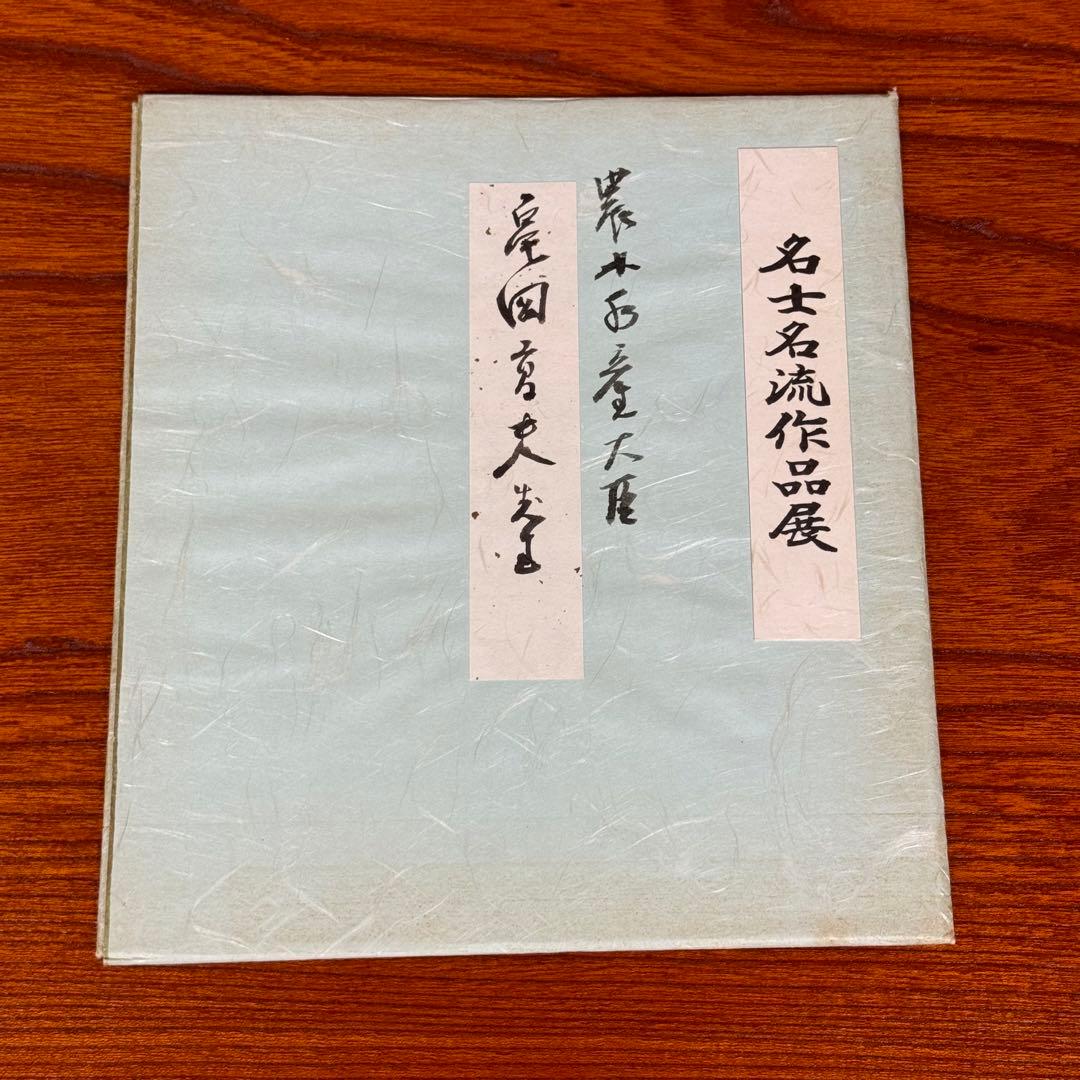 名士名流作品展
農林水産大臣
亀岡高夫先生